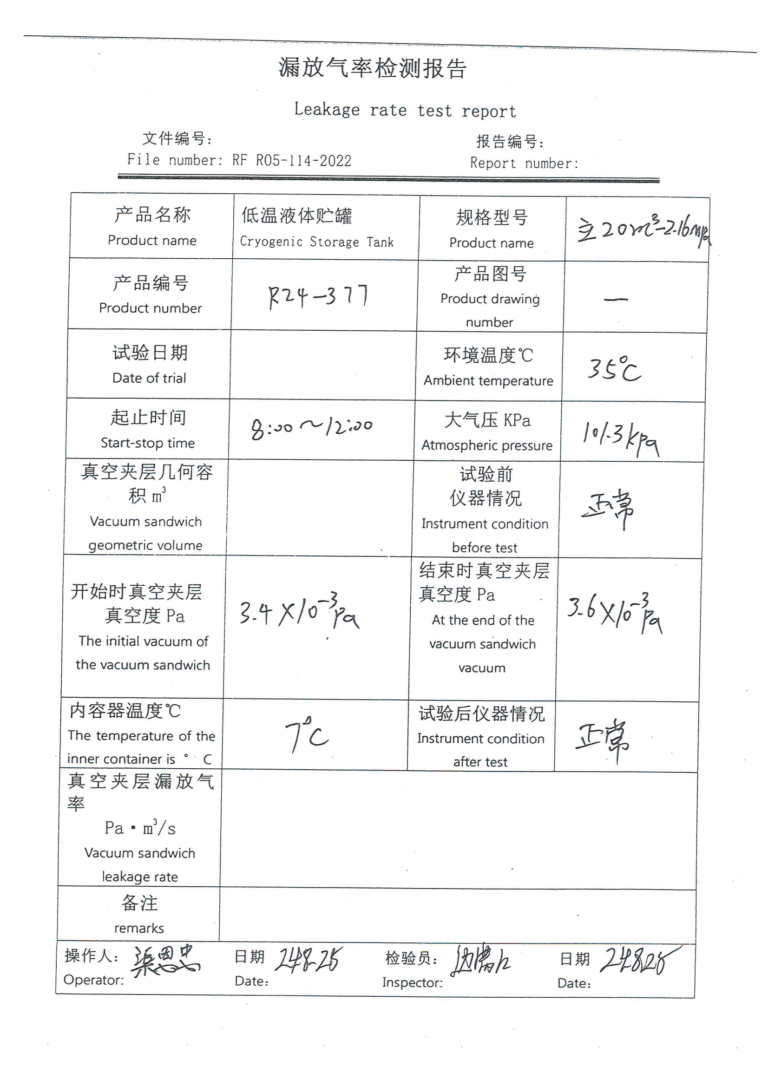 漏放气率检测报告
Leakage rate test report
文件编号: 报告编号:
File number: RF R05-114-2022 Report number:
产品名称 低温液体贮罐 规格型号 立20m³-2.16mpa
Product name Cryogenic Storage Tank Product name
产品编号 R24-377 产品图号 —
Product number Product drawing
number
试验日期 环境温度℃ 35℃
Date of trial Ambient temperature
起止时间 8:00~12:00 大气压 KPa 101.3kpa
Start-stop time Atmospheric pressure
真空夹层几何容
积 m³
Vacuum sandwich
geometric volume
试验前
仪器情况 正常
Instrument condition
before test
开始时真空夹层
真空度 Pa 3.4×10⁻³pa
The initial vacuum of
the vacuum sandwich
结束时真空夹层
真空度 Pa 3.6×10⁻³pa
At the end of the
vacuum sandwich
vacuum
内容器温度℃ 7℃
The temperature of the
inner container is ° C
试验后仪器情况 正常
Instrument condition
after test
真空夹层漏放气
率
Pa·m³/s
Vacuum sandwich
leakage rate
备注
remarks
操作人: 日期 24.8.25 检验员: 日期 24.8.25
Operator: Date: Inspector: Date: